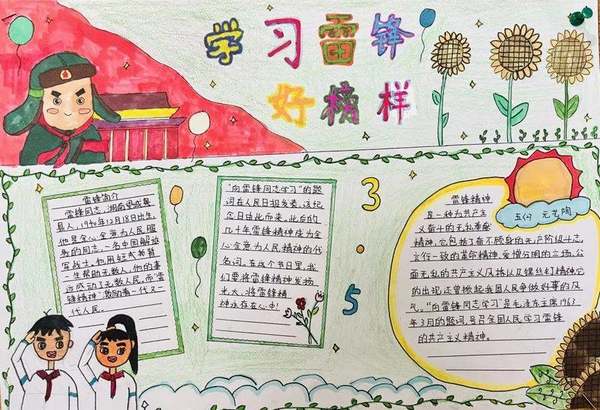 学习雷锋
好榜样
雷锋简介
雷锋同志,湖南望城
县人,1940年12月18日出生,
他是全心全意为人民服
务的同志,一名中国解放
写战士,他用短式书其
一生帮助无数人,他的事
迹感动了无数人民,而雷
锋精神激励着一代又一
代人民。
"向雷锋同志学习"的题
词在人民日报发表,这纪
念日由此而来,此后的
几十年雷锋精神成为全
心全意为人民精神的代
名词,在这个节日里,我
们要将雷锋精神发扬
光大,将雷锋精
神永存在心中!
3
5
五(1) 元艺陶
雷锋精神
是一种为共产主
义奋斗的无私奉献
精神,它包括了奋不顾身的无产阶级斗志,
言行一致的革命精神,爱憎分明的立场,公
而无私的共产主义风格以及螺丝钉精神,它
的出现还曾掀起全国人民争做好事的风
气,"向雷锋同志学习"是毛泽东主席1963
年3月的题词,号召全国人民学习雷锋
的共产主义精神。